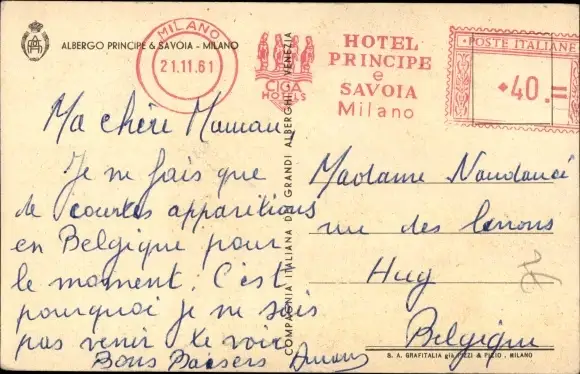 ALBERGO PRINCIPE & SAVOIA - MILANO
MILANO
21.11.61
CIGA
HOTELS
HOTEL
PRINCIPE
e
SAVOIA
Milano
POSTE ITALIANE
40
COMPAGNIA ITALIANA DEI GRANDI ALBERGHI - VENEZIA
Ma chère Maman,
Je ne fais que
de courtes apparitions
en Belgique pour
le moment. C'est
pourquoi je ne suis
pas venir te voir
Bons Baisers
Madame
rue des
Huy
Belgique
S. A. GRAFITALIA già PIZZI & PIZIO - MILANO